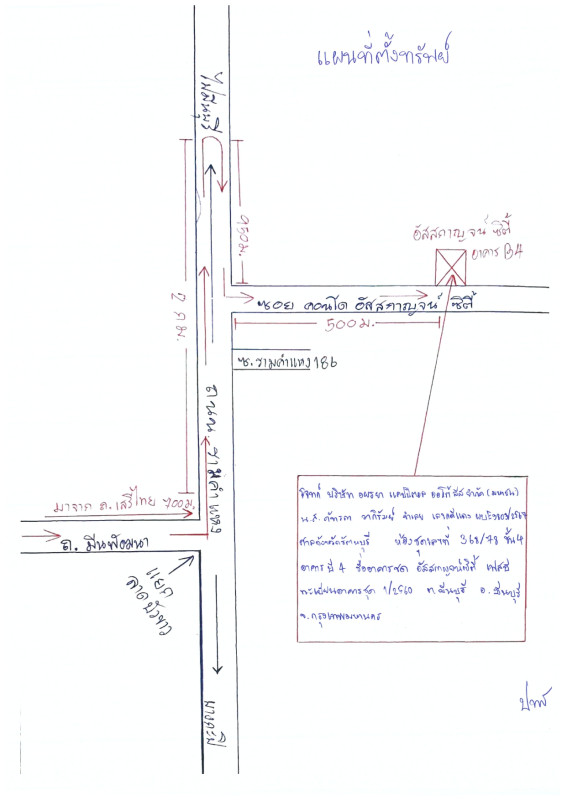 แผนที่ตั้งทรัพย์
ไปมีนบุรี
950 ม.
2 ก.ม.
อัสสกาญจน์ ซิตี้
อาคาร B4
ซอย คอนโด อัสสกาญจน์ ซิตี้
500 ม.
ซ. รามคำแหง 186
ถนน รามคำแหง
มาจาก ถ. เสรีไทย 700 ม.
ถ. มีนพัฒนา
แยก
ลาดบัวขาว
บางกะปิ
โจทก์ บริษัท อยุธยา แคปปิตอล ออโต้ ลีส จำกัด (มหาชน)
น.ส. จำเลย
ศาลจังหวัดมีนบุรี ห้องชุดเลขที่ 368/78 ชั้น 4
อาคารที่ 4 ชื่ออาคารชุด อัสสกาญจน์ซิตี้ เฟส 2
ทะเบียนอาคารชุด 1/2560 ต. มีนบุรี อ. มีนบุรี
จ. กรุงเทพมหานคร